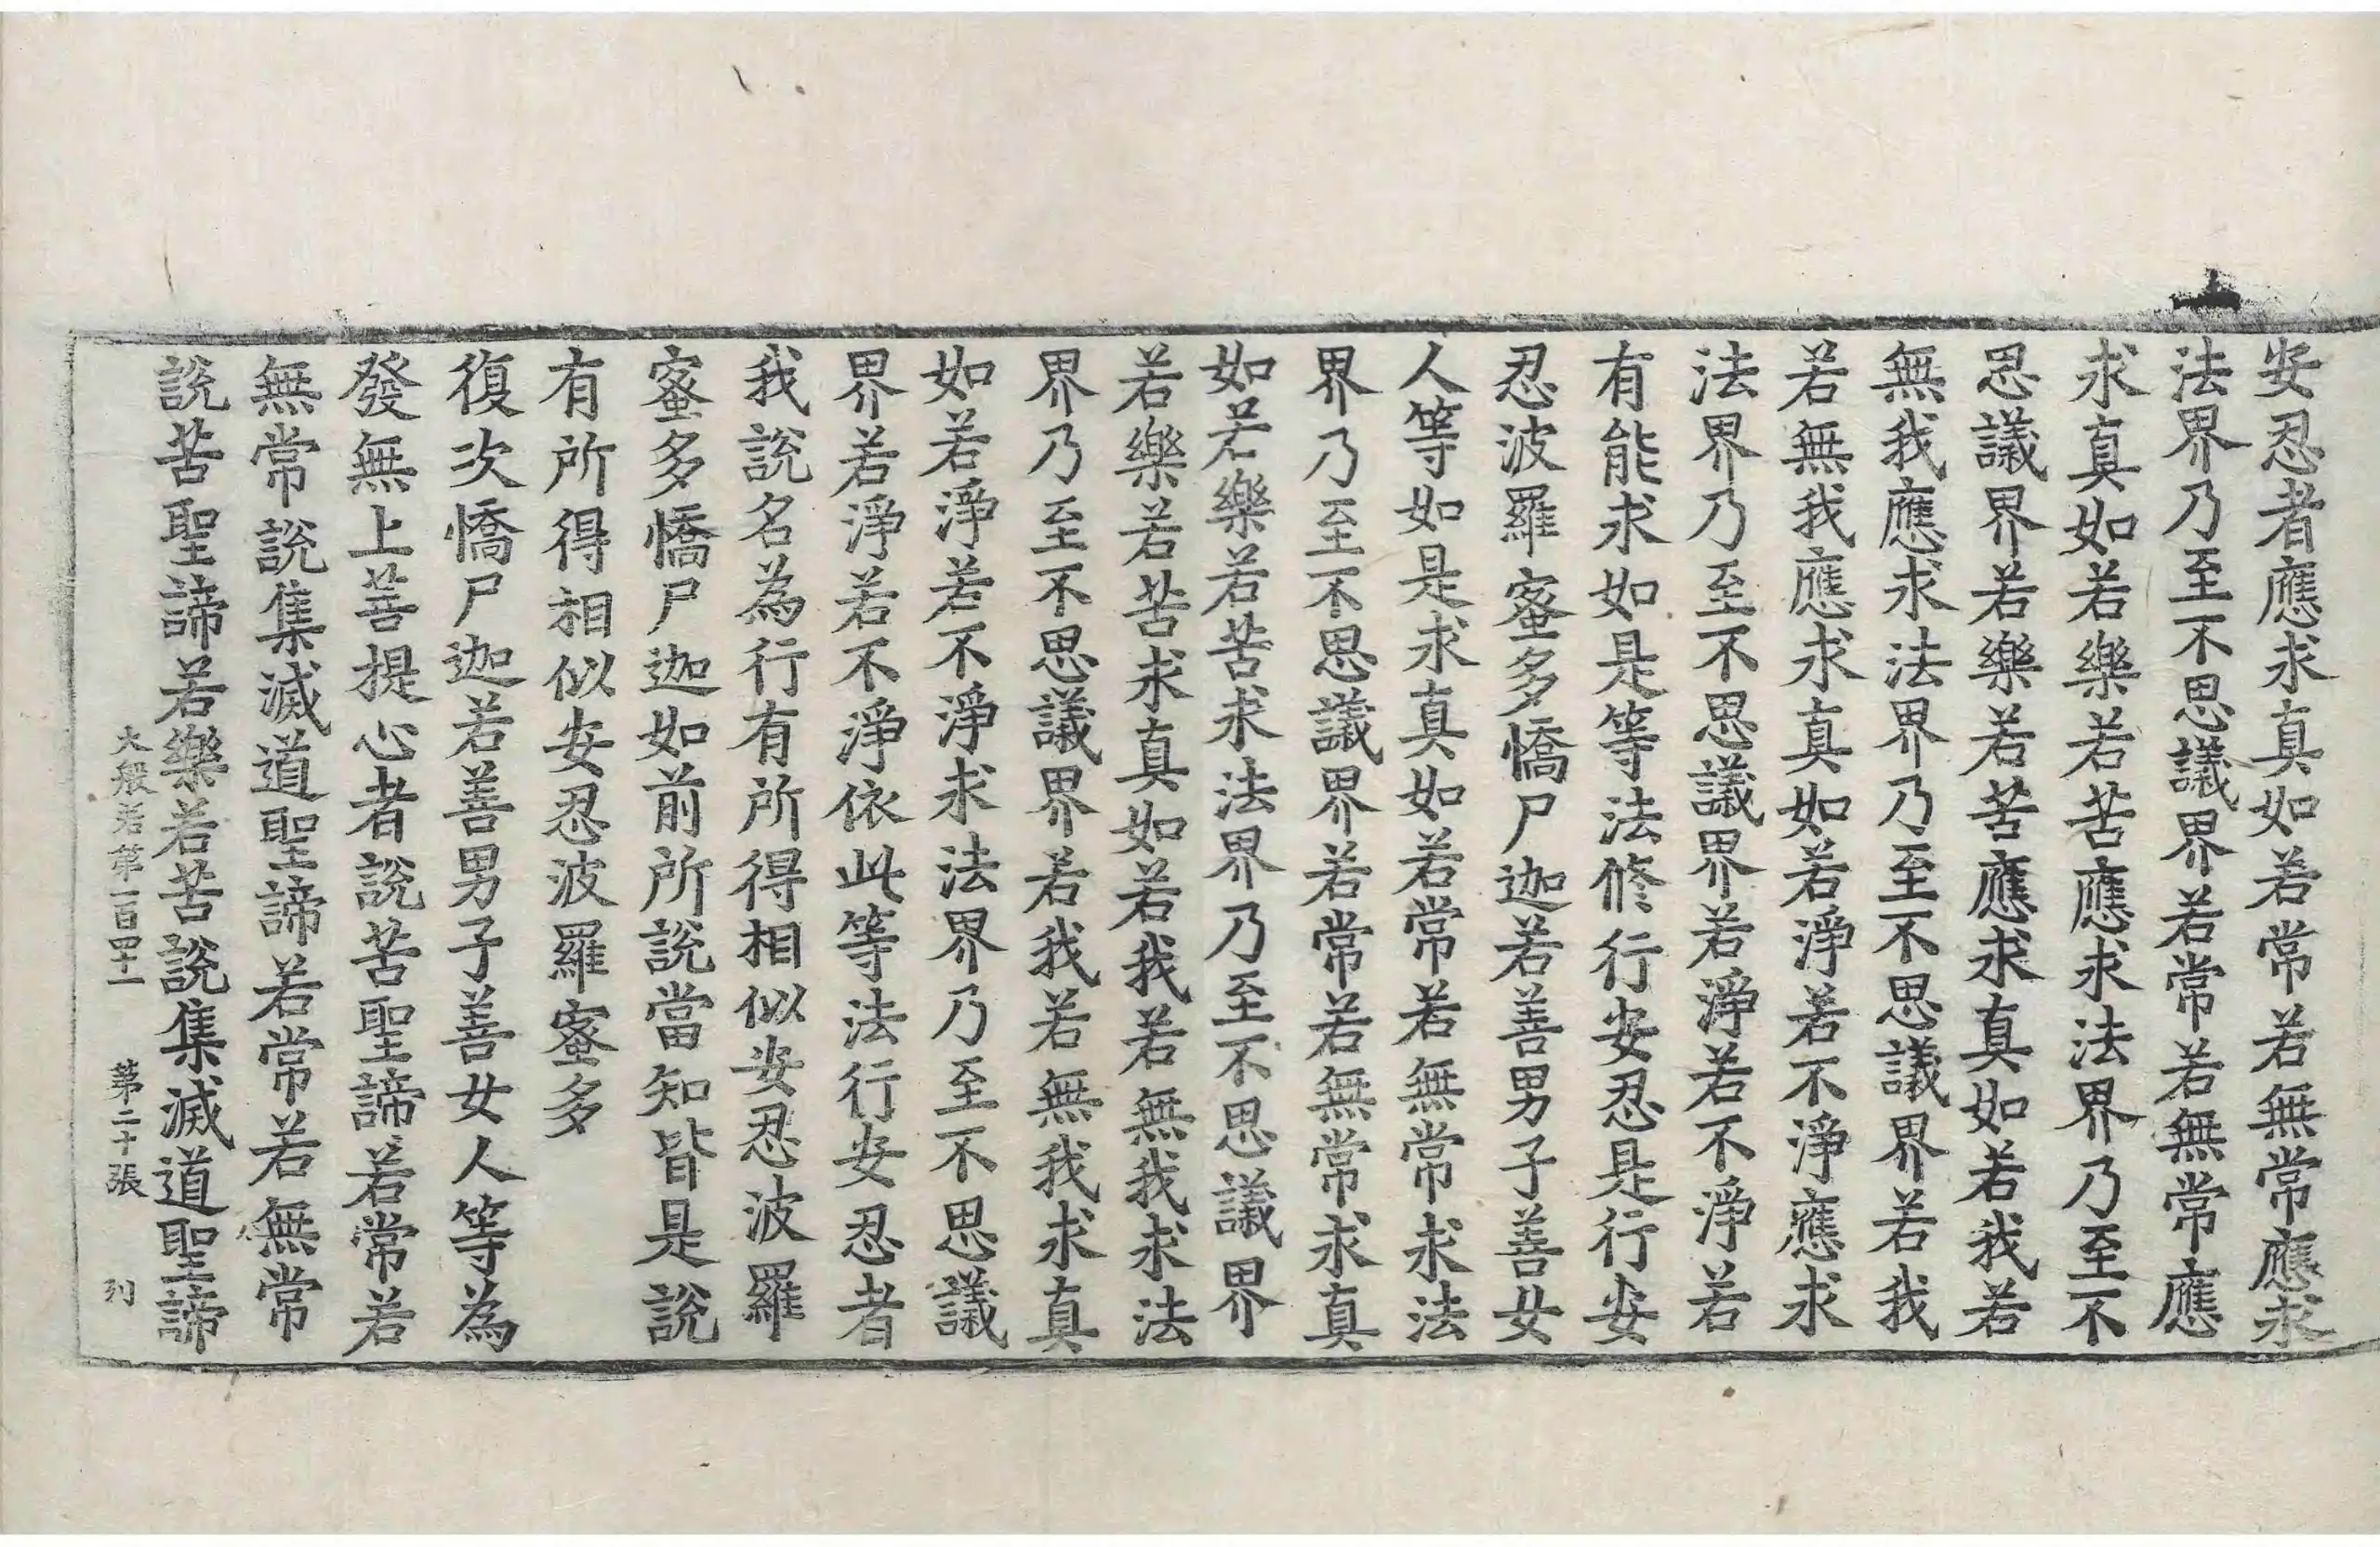 安忍者應求真如若常若無常應求
法界乃至不思議界若常若無常應
求真如若樂若苦應求法界乃至不
思議界若樂若苦應求真如若我若
無我應求法界乃至不思議界若我
若無我應求真如若淨若不淨應求
法界乃至不思議界若淨若不淨若
有能求如是等法修行安忍是行安
忍波羅蜜多憍尸迦若善男子善女
人等如是求真如若常若無常求法
界乃至不思議界若常若無常求真
如若樂若苦求法界乃至不思議界
若樂若苦求真如若我若無我求法
界乃至不思議界若我若無我求真
如若淨若不淨求法界乃至不思議
界若淨若不淨依此等法行安忍者
我說名為行有所得相似安忍波羅
蜜多憍尸迦如前所說當知皆是說
有所得相似安忍波羅蜜多
復次憍尸迦若善男子善女人等為
發無上菩提心者說苦聖諦若常若
無常說集滅道聖諦若常若無常
說苦聖諦若樂若苦說集滅道聖諦
大般若第一百四十一 第二十張 列